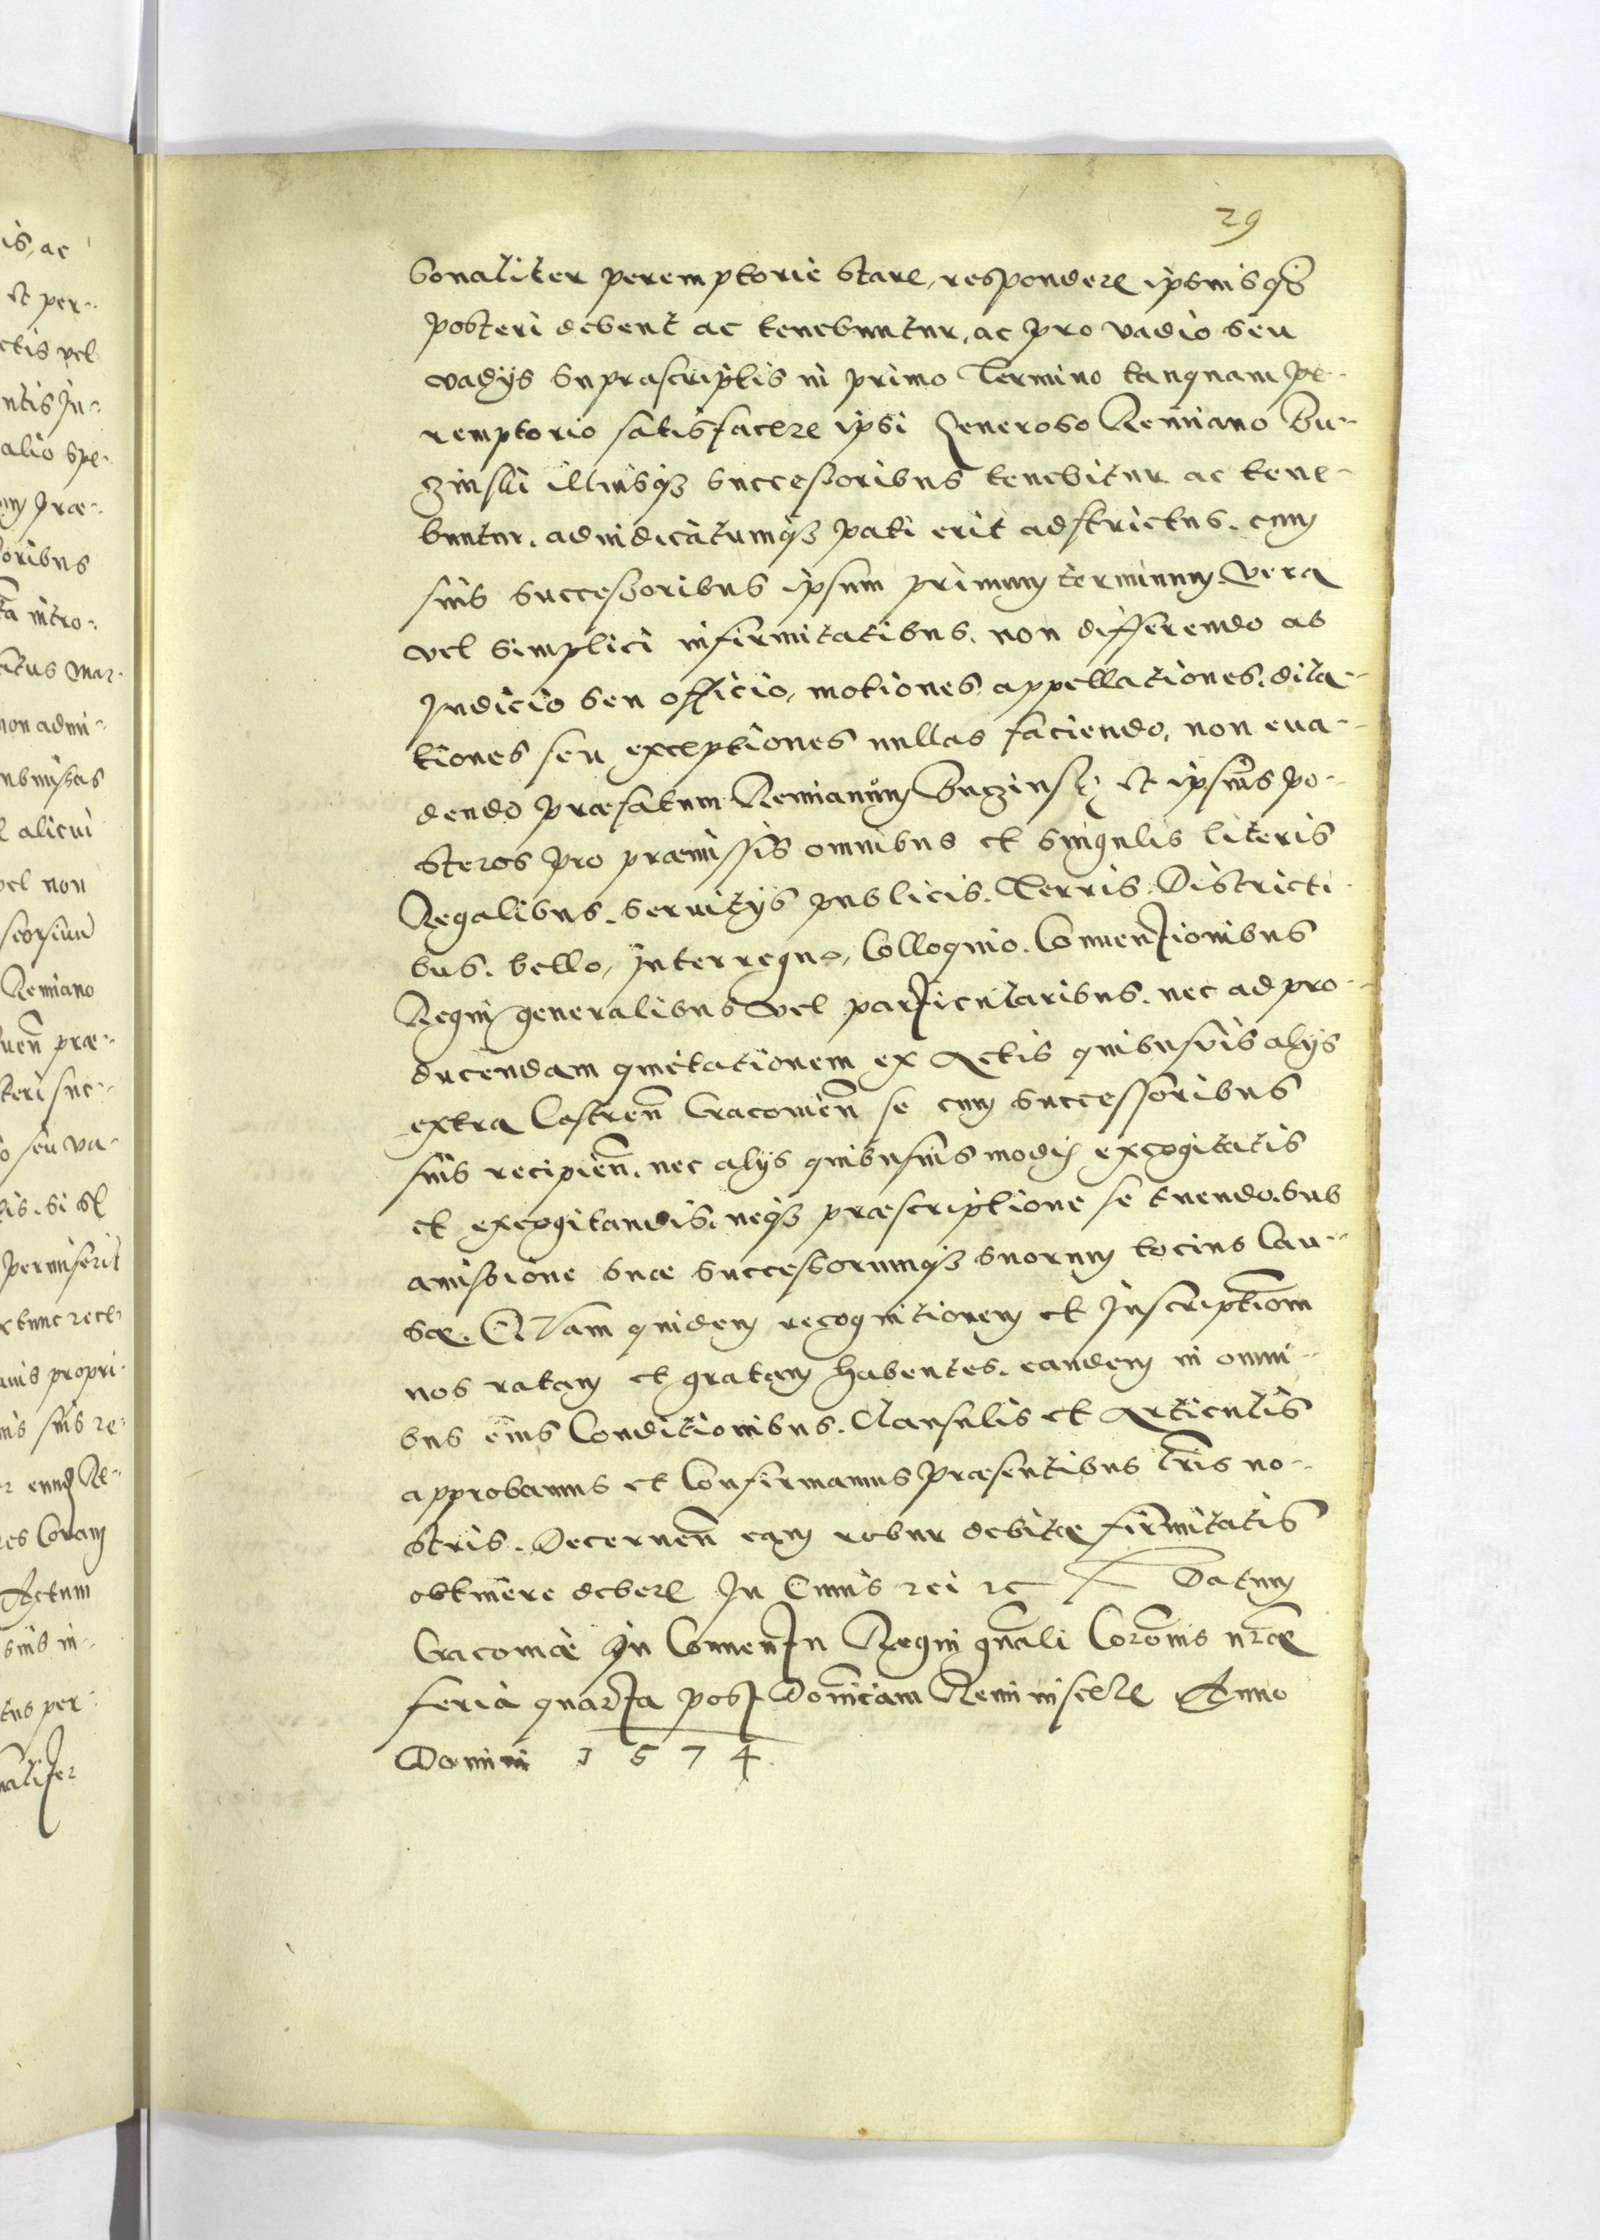 29
sonaliter peremptorie stare, respondere ipsiusq3
posteri debent ac tenebuntur, ac pro vadio seu
vadijs supra scriptis in primo Termino tanquam pe-
remptorio satisfacere ipsi Generoso Remiano Bu-
zinski illiusq3 successoribus tenebitur ac tene-
buntur. adiudicatumq3 pati erit adstrictus. cum
suis successoribus ipsum primum terminum vera
vel simplici infirmitatibus. non differendo ab
Judicio seu officio, motiones appellationes. dila-
tiones seu exceptiones nullas faciendo, non eua-
dendo præfatum Remianum Buzinsky et ipsius po-
steros pro præmissis omnibus et singulis literis
Regalibus. seruitijs publicis. Terris. Districti-
bus. bello, Interregno, Colloquio. Conuentionibus
Regni generalibus vel particularibus. nec ad pro-
ducendam quietationem ex Actis quibusuis alijs
extra Castren Cracouien se cum successoribus
suis recipien. nec alijs quibusuis modis excogitatis
et excogitandis. neq3 præscriptione se tuendo. sub
amissione suæ successorumq3 suorum tocius Cau-
sæ. Quam quidem recognitionem et Inscriptiom
nos ratam et gratam habentes. eandem in omni-
bus eius Conditionibus. Clausulis et Articulis
approbamus et Confirmamus præsentibus lris no-
stris. Decernen eam robur debitæ firmitatis
obtinere debere In Cuius rei rc Datum
Cracouiæ In Conuentu Regni gnali Coronis nræ
feria quarta post Dominicam Reminiscere Anno
Domini 1574.
is, ac
et per-
ctis vel
ntis Ju-
alio spe-
præ-
oribus
intro-
Mar-
non admi-
submissas
alicui
vel non
seorsim
Remiano
præ-
teri suc-
seu va-
tis. si
permiserit
extunc
propri-
suis re-
Re-
Coram
Actum
suis in-
per-
naliter